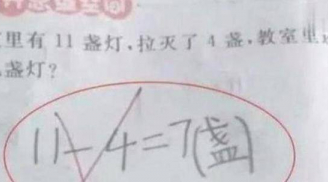 里有 11 盏灯，拉灭了 4 盏，教室里
盏灯？
11-4=7(盏)